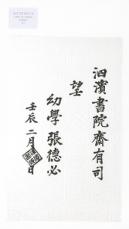 泗濱書院齋有司
望
幼學張德必
壬辰二月 日